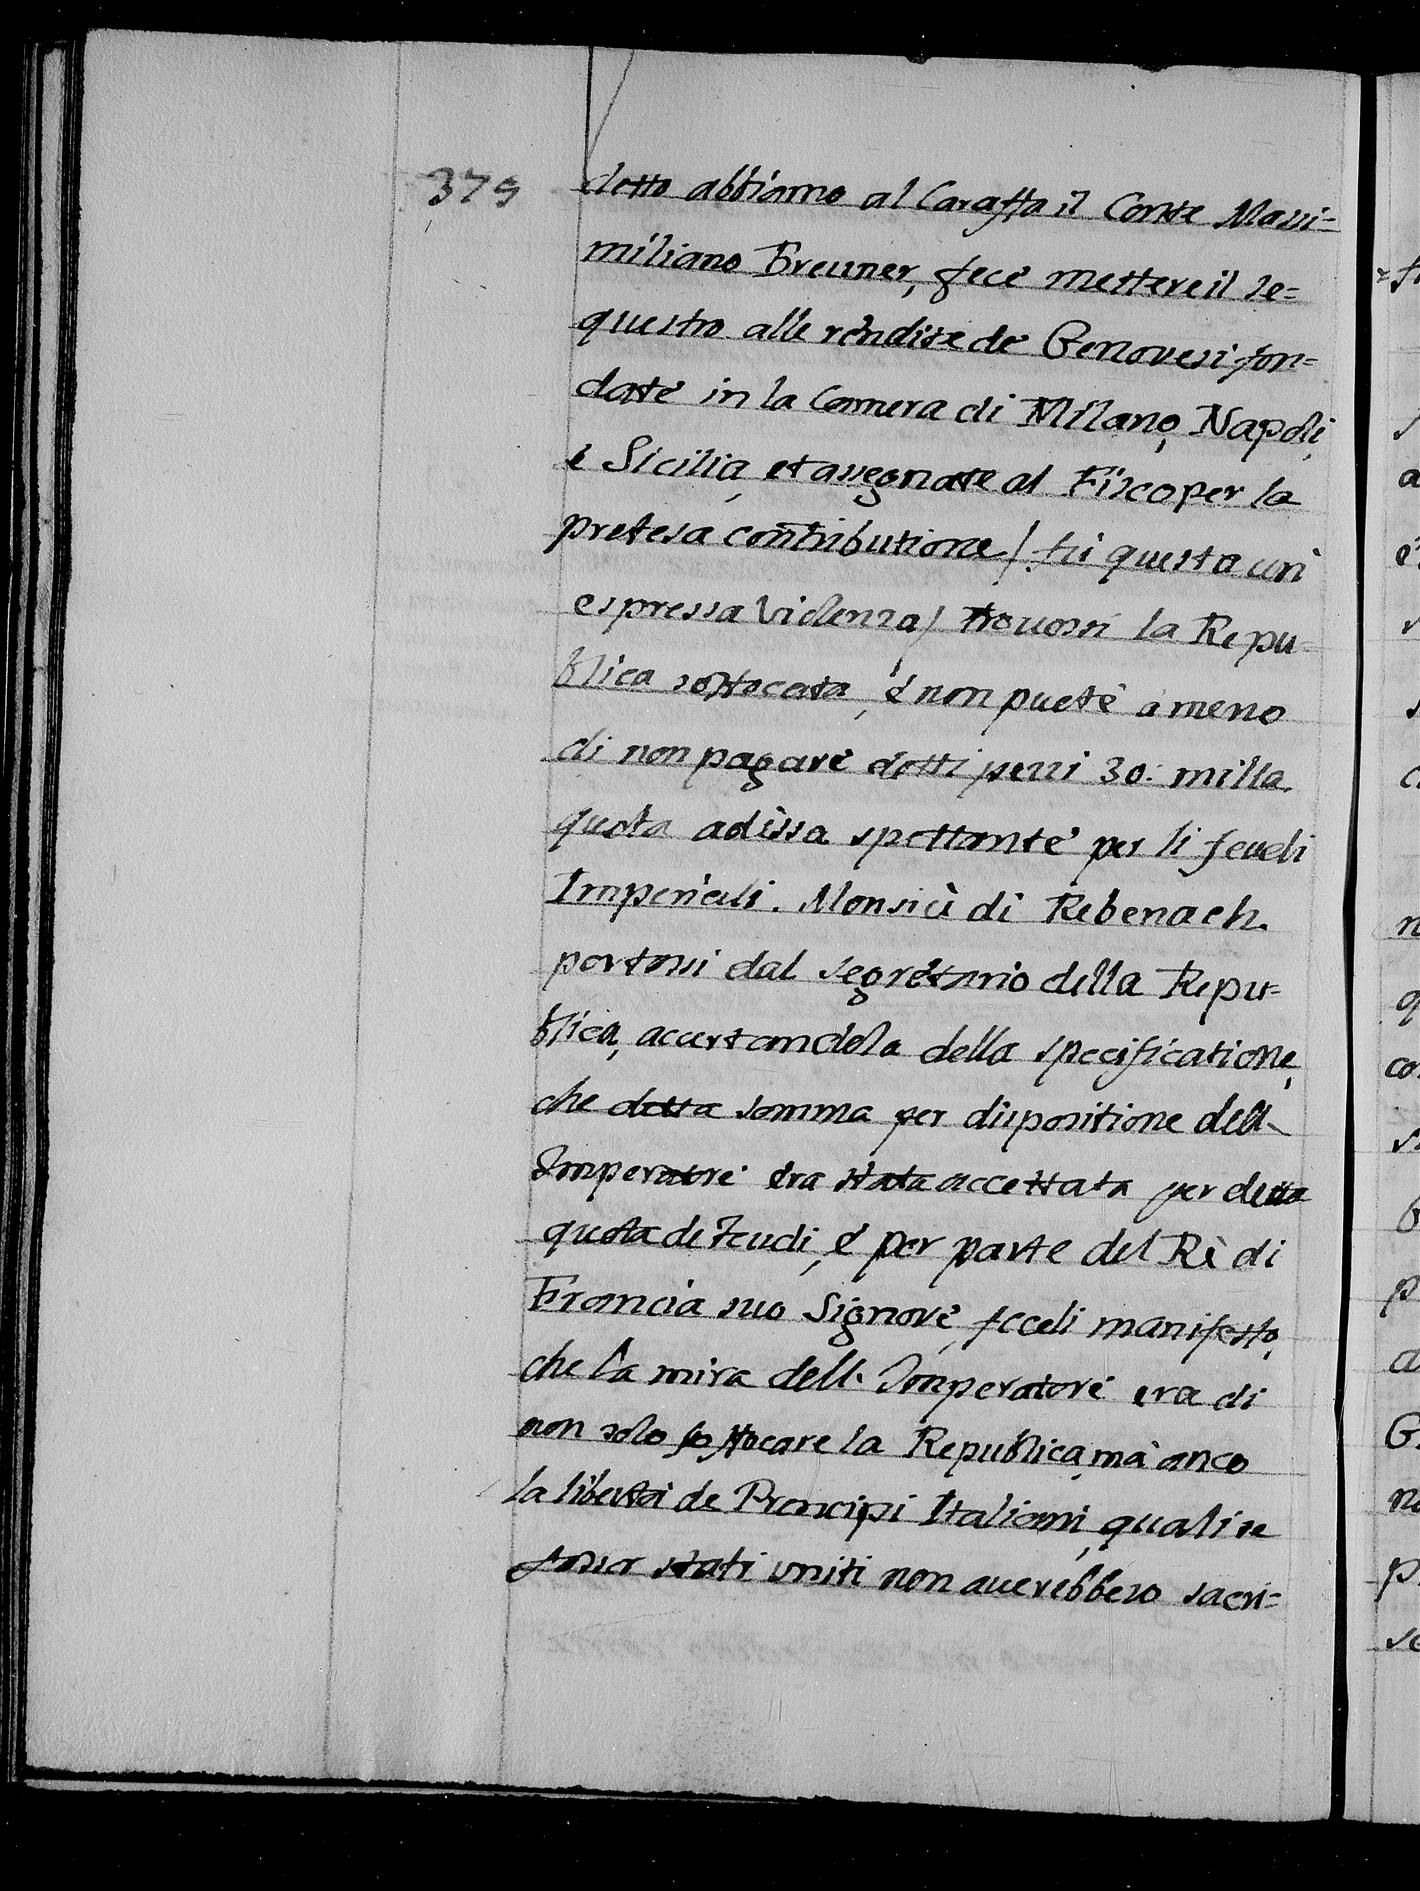 379
detto abbiamo al Caraffa il Conte Massi=
miliano Breuner, fece mettere il se=
questro alle rendite de Genovesi fon=
date in la Camera di Milano, Napoli,
e Sicilia, et assegnate al Fisco per la
pretesa contributione / fù questa un
espressa Violenza / trouossi la Repu
blica soffocata, è non puetè à meno
di non pagare detti pezzi 30. milla
quota adissa spettante per li feudi
Imperiali. Monsiù di Rebenach
portossi dal segretario della Repu=
blica, accertandola della specificatione,
che detta somma per dispositione dell
Imperatore era stata accettata per detta
quota de Feudi, è per parte del Rè di
Francia suo Signore, feceli manifesto,
che la mira dell Imperatore era di
non solo soffocare la Republica, mà anco
la libertà de Prencipi Italiani, quali se
fosser stati uniti non auerebbero sacri=